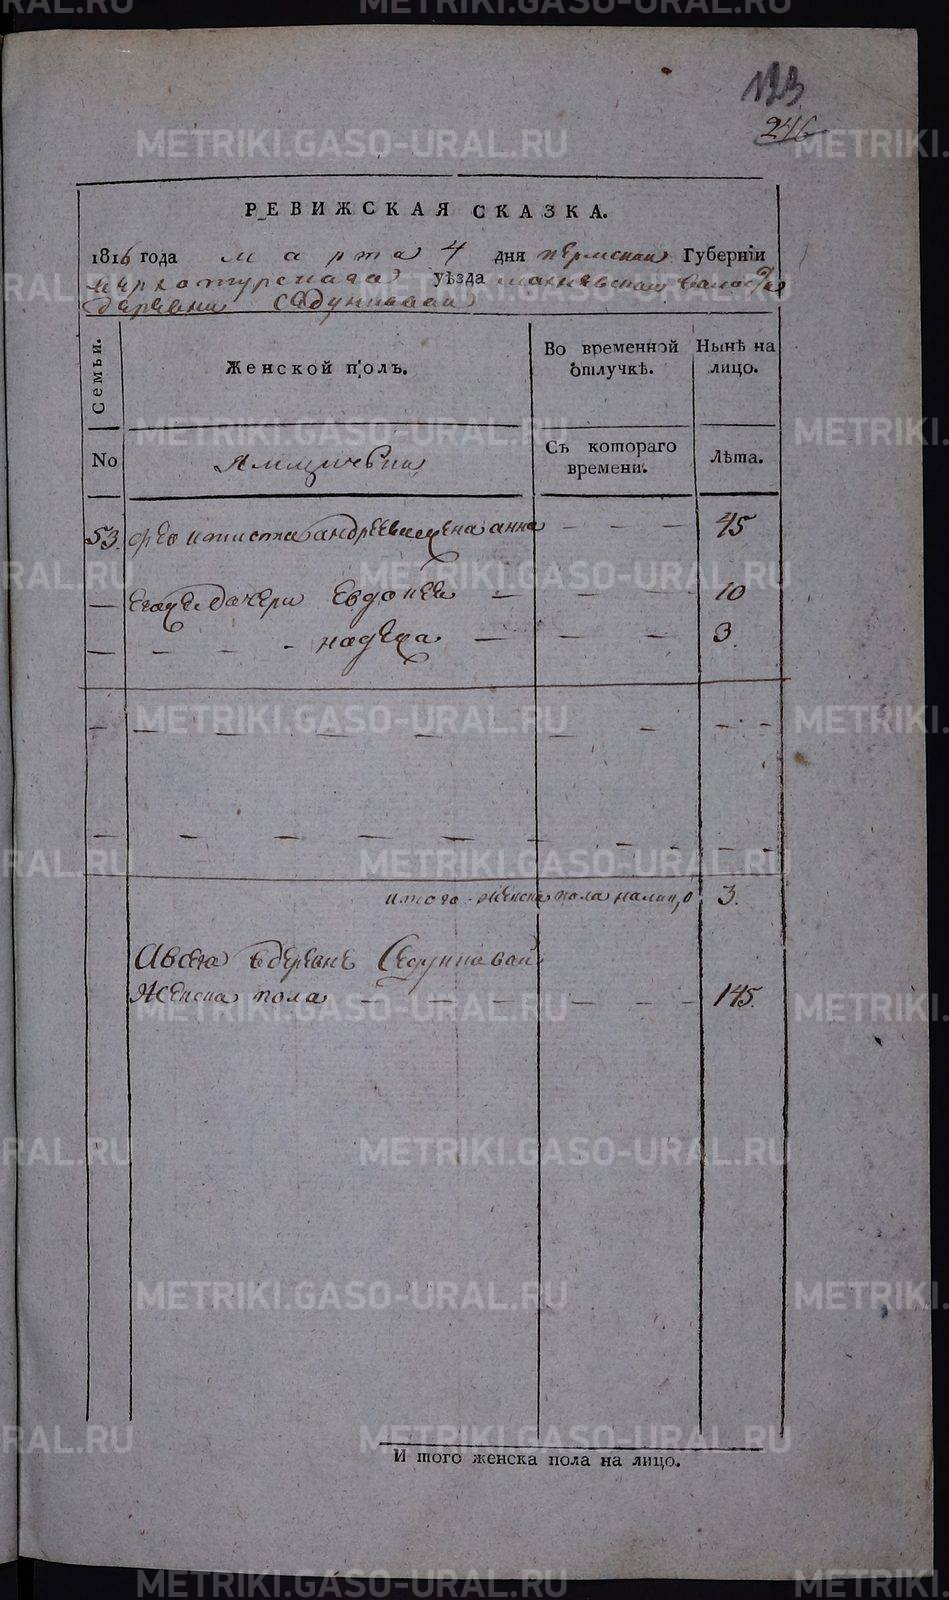 123
246
РЕВИЖСКАЯ СКАЗКА.
1816 года марта 4 дня пермской Губернїи
верхотурскаго уѣзда махневской волости
деревни Седуниваи
Семьи.
Женской полъ.
Во временной отлучкѣ.
Нынѣ на лицо.
No
Ямщичьки
Съ котораго времени.
Лѣта.
53. феоктиста андреева жена анна — — — 45
— его же дочери Евдокея — — — 10
— — — - надежа — — — 3.
итого женска пола налицо 3.
А всего в деревне Седуниваи
Женска пола — — — — — — 145.
И того женска пола на лицо.
METRIKI.GASO-URAL.RU